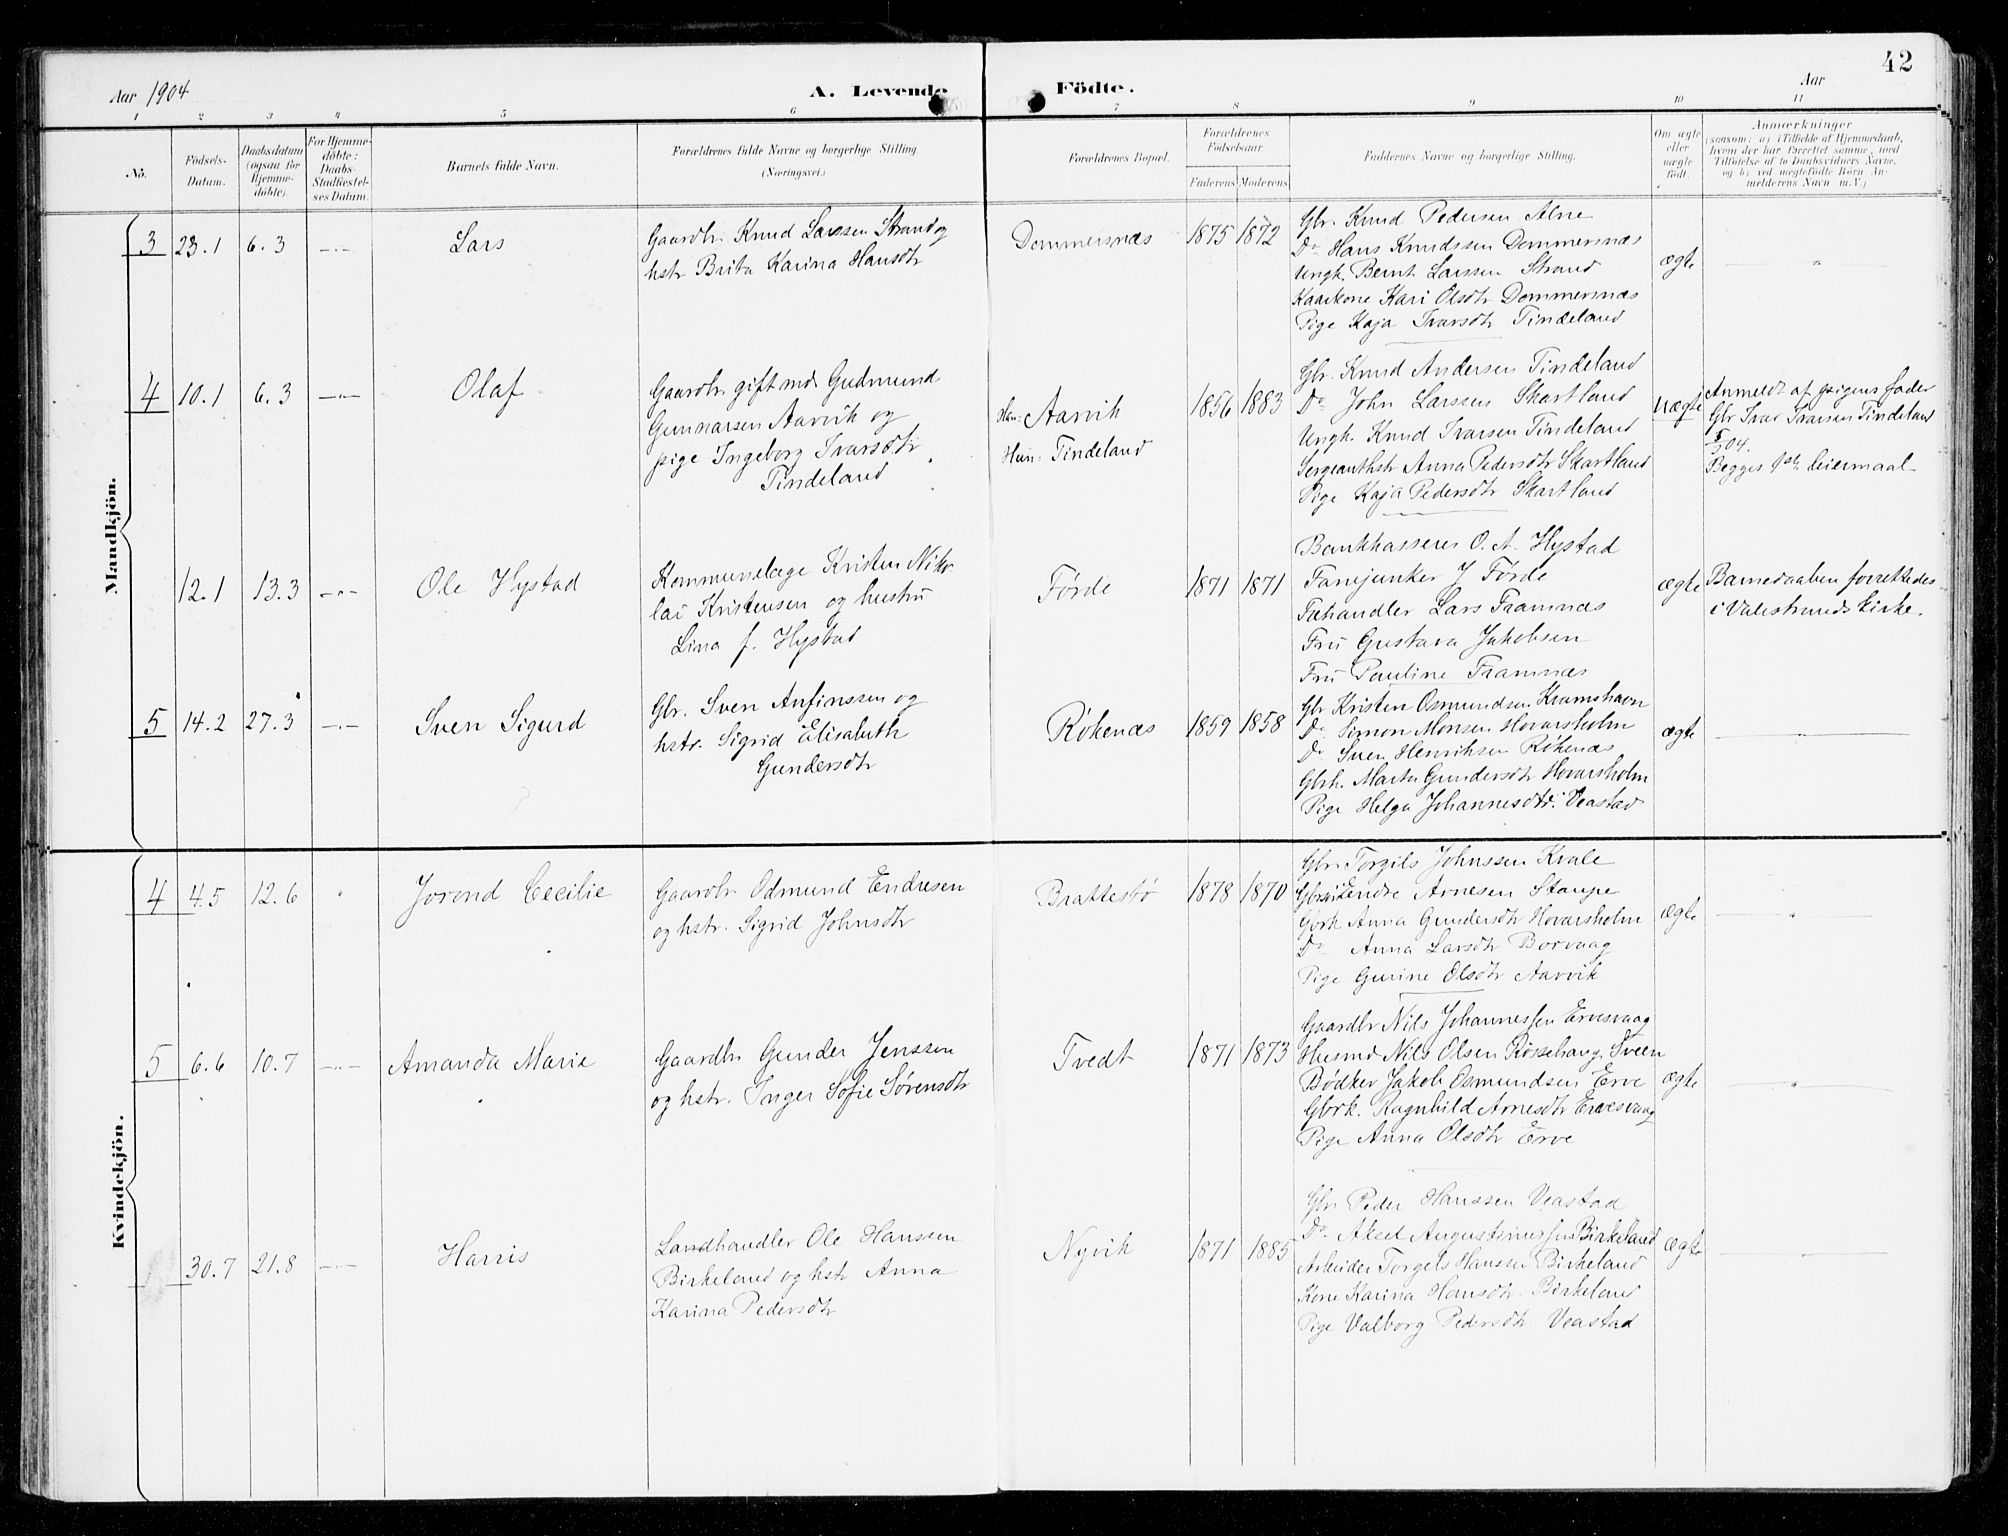 42
Aar 1904
A. Levende Födte.
Aar
1 2 3 4 5 6 7 8 9 10 11
No.
Födsels-Datum.
Daabsdatum (ogsaa for Hjemme-döbte).
For Hjemme-döbte: Daabs-Stadfæstel-ses Datum.
Barnets fulde Navn.
Forældrenes fulde Navne og borgerlige Stilling.
(Næringsvei.)
Forældrenes Bopæl.
Forældrenes Fødselsaar.
Faderens Moderens
Faddernes Navne og borgerlige Stilling.
Om ægte eller uægte födt.
Anmærkninger
(saasom: a) i Tilfælde af Hjemmedaab,
hvem der har forrettet samme, med
Tilføielse af to Daabsvidners Navne.
og b) ved uægtefödte Börn An-
melderens Navn m. V.)
Mandkjön.
3 23.1 6.3 —"— Lars
Gaardbr. Knud Larssen Strand og
hstr Brita Karina Hansdtr
Dommersnæs 1875 1872
Gbr. Knud Pedersen Alne
Do Hans Knudssen Dommersnæs
Ungk. Bernt Larssen Strand
Kaarkone Kari Olsdtr Dommersnæs
Pige Kaja Ivarsdtr Tindeland
ægte "
4 10.1 6.3 —"— Olaf
Gaardbr. gift md Gudmund
Gunnarsen Aarvik og
pige Ingeborg Ivarsdtr
Tindeland
Han: Aarvik
Hun: Tindeland
1856 1883
Gbr. Knud Andersen Tindeland
Do John Larssen Skartland
Ungk. Knud Ivarsen Tindeland
Sergeanthstr Anna Pedersdtr Skartland
Pige Kaja Pedersdtr Skartland
Uægte
Anmeldt af pigens fader
Gbr Ivar Ivarsen Tindeland
Begges 1ste leiermaal
12.1 13.3 —"— Ole Hystad
Kommunelæge Kristen Niko
lai Kristensen og hustru
Lina f. Hystad
Førde 1871 1871
Bankkasserer O. A. Hystad
Fanejunker J Førde
Fæhandler Lars Framnæs
Fru Gustava Jakobsen
Fru Pauline Framnæs
ægte
Barnedaaben forrettedes
i Valestrands kirke.
5 14.2 27.3 —"— Sven Sigurd
Gbr. Sven Anfinssen og
hstr. Sigrid Elisabeth
Gundersdtr
Røkenæs 1859 1858
Gbr Kristen Osmundsen Kramshavn
Do Simon Monsen Hovarsholm
Do Sven Henriksen Røkenæs
Gbrk. Marta Gundersdtr Hovarsholm
Pige Helga Johannesdtr. Veastad
ægte "
Kvindekjön.
4 4.5 12.6 " Jorond Cecilie
Gaardbr Odmund Endresen
og hstr. Sigrid Johnsdtr
Brattesbø 1878 1870
Gbr. Torgils Johnssen Kvale
Endre Arnesen Staupe
Gbrk Anna Gundersdtr Hovarsholm
Do Anna Larsdtr Borvaag
Pige Gurine Olsdtr Aarvik
ægte "
5 6.6 10.7 —"— Amanda Marie
Gaardbr Gunder Jenssen
og hstr. Inger Sofie Sørensdtr
Tvedt 1871 1873
Gaardbr Nils Johannessen Ervesvaag
Husmd Nils Olsen Røssehaug Sveen
Bødker Jakob Osmundsen Erve
Gbrk. Ragnhild Arnesdtr Ervesvaag
Pige Anna Olsdtr Erve
ægte "
30.7 21.8 —"— Harris
Landhandler Ole Hanssen
Birkeland og hstr Anna
Karina Pedersdtr
Nyvik 1871 1885
Gbr Peder Hanssen Veastad
Do Aksel Augustinussen Birkeland
Arbeider Torgels Hanssen Birkeland
Kone Karina Hansdtr. Birkeland
Pige Valborg Pedersdtr. Veastad
ægte "